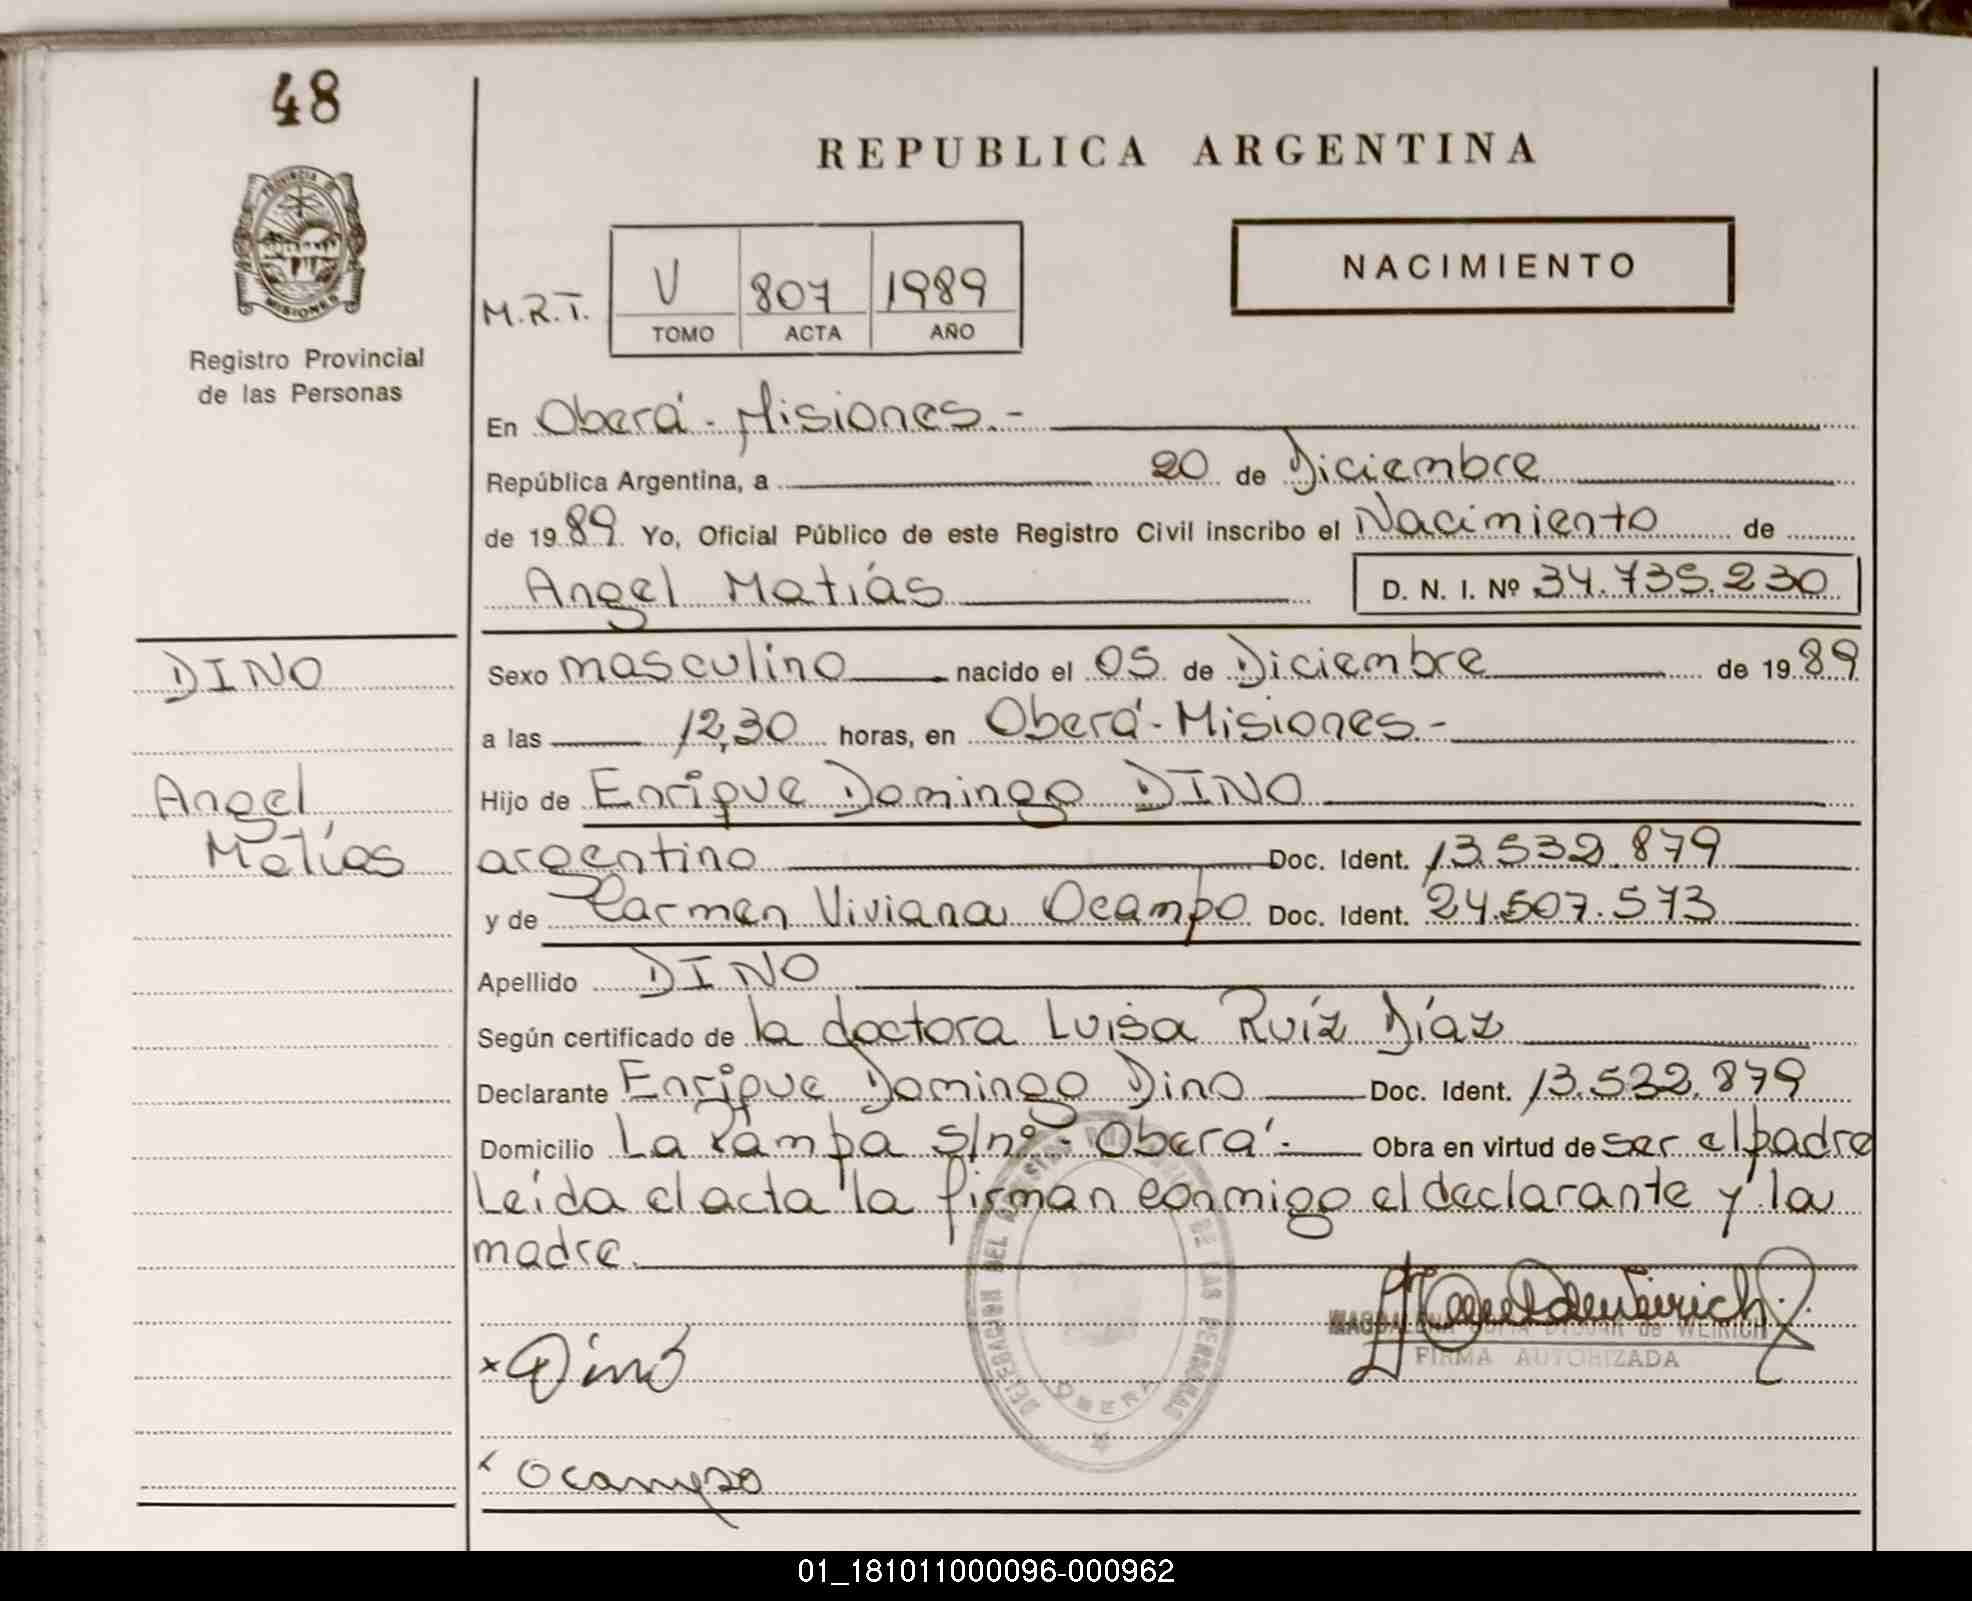 48
PROVINCIA DE
MISIONES
Registro Provincial
de las Personas
REPUBLICA ARGENTINA
NACIMIENTO
M.R.T.
V 807 1989
TOMO ACTA AÑO
En Oberá - Misiones.-
República Argentina, a 20 de Diciembre
de 1989 Yo, Oficial Público de este Registro Civil inscribo el Nacimiento de
Angel Matiás D. N. I. Nº 34.735.230
DINO
Angel
Matías
Sexo masculino nacido el 05 de Diciembre de 1989
a las 12,30 horas, en Oberá - Misiones.-
Hijo de Enrique Domingo DINO
argentino Doc. Ident. 13.532.879
y de Carmen Viviana Ocampo Doc. Ident. 24.507.573
Apellido DINO
Según certificado de la doctora Luisa Ruíz Díaz
Declarante Enrique Domingo Dino Doc. Ident. 13.532.879
Domicilio La Pampa s/nº - Oberá.- Obra en virtud de ser el padre
Leída el acta la firman conmigo el declarante y la
madre.
DELEGACION DEL REGISTRO PROVINCIAL DE LAS PERSONAS
OBERA
MAGDALENA SOFIA DIBUAR de WEIRICH
FIRMA AUTORIZADA
x Dino
x Ocampo
01_181011000096-000962